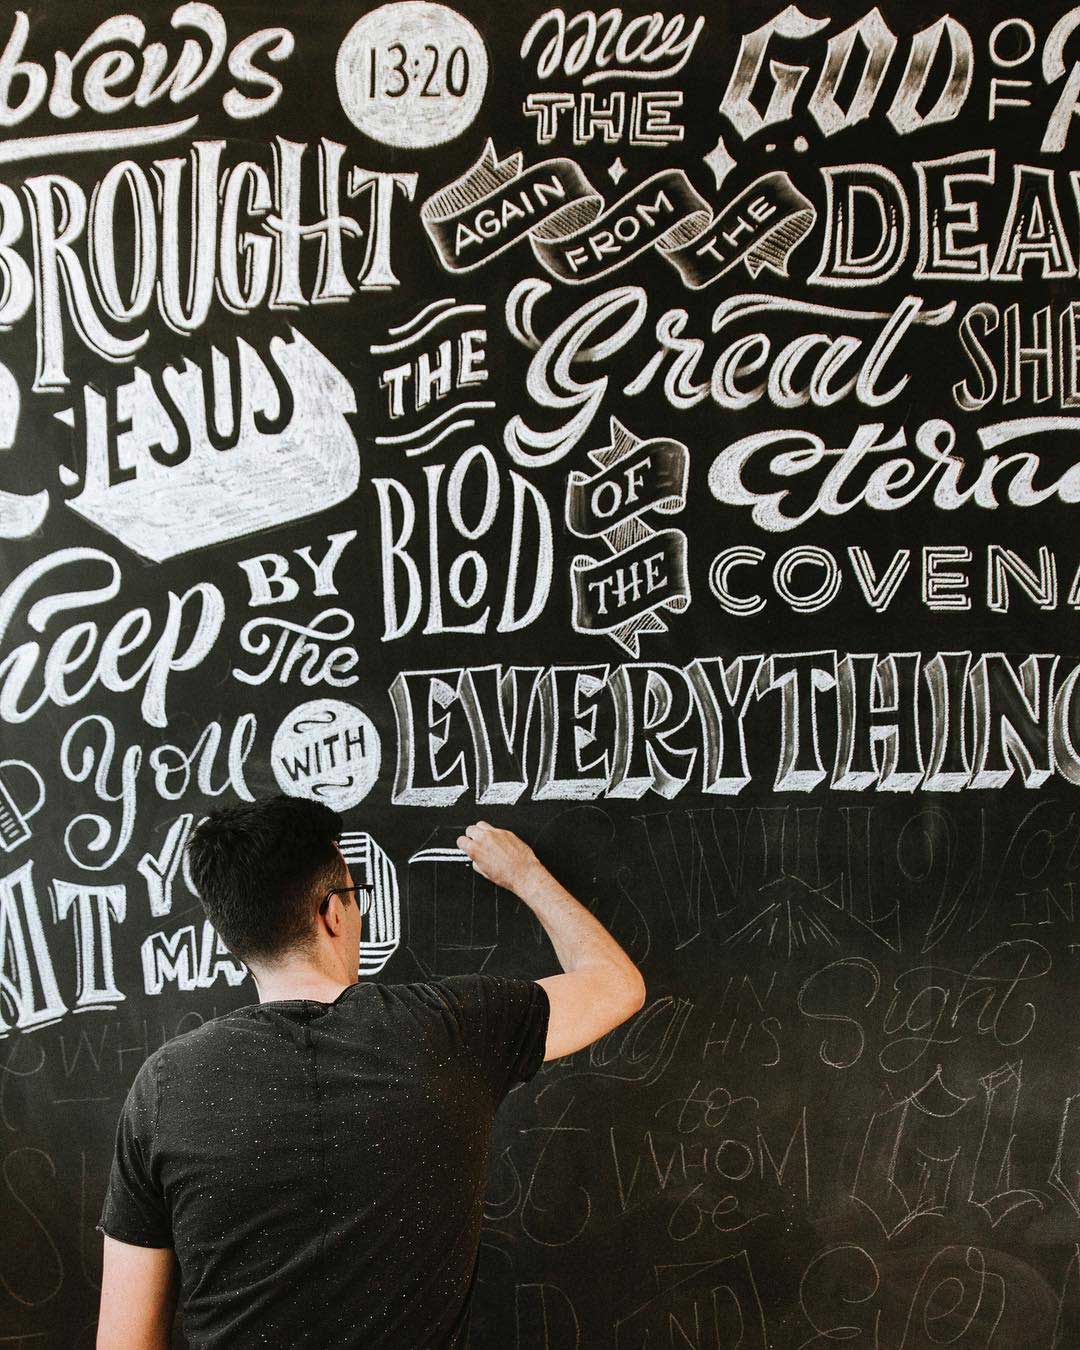 brews 13:20 May THE GOD TO
BROUGHT AGAIN FROM THE DEA
JESUS THE Great SHE
BLOOD OF THE Etern
Keep BY The COVENA
You WITH EVERYTHING
AT MA
WILL IN
IN HIS Sight
to WHOM be
AND Ever